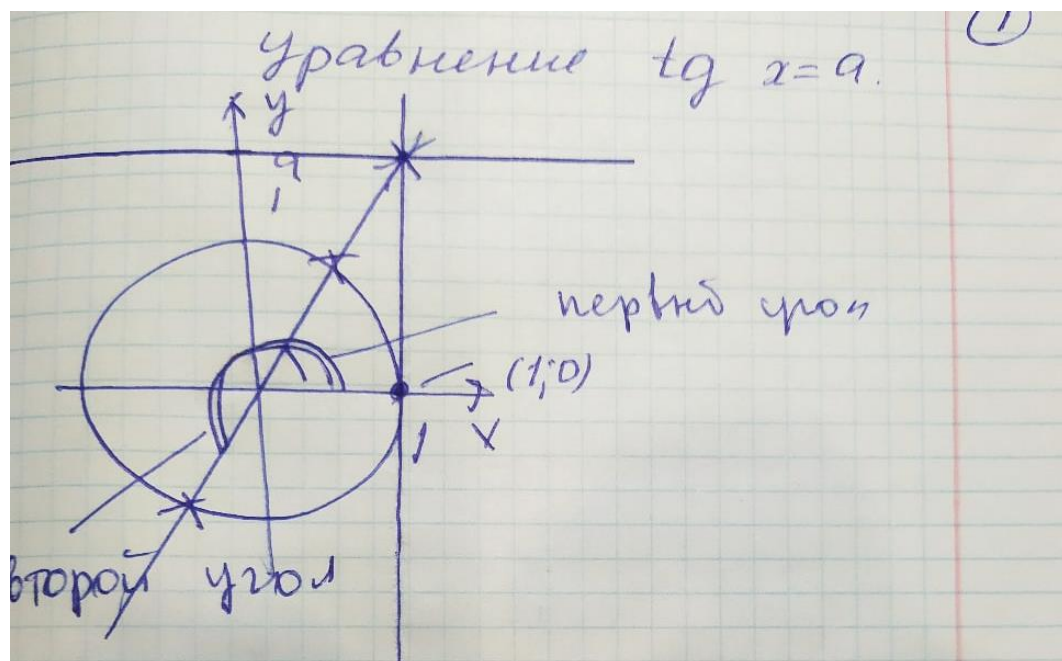 1
Уравнение tg x = a.
y
a
1
первый угол
(1;0)
1 x
второй угол